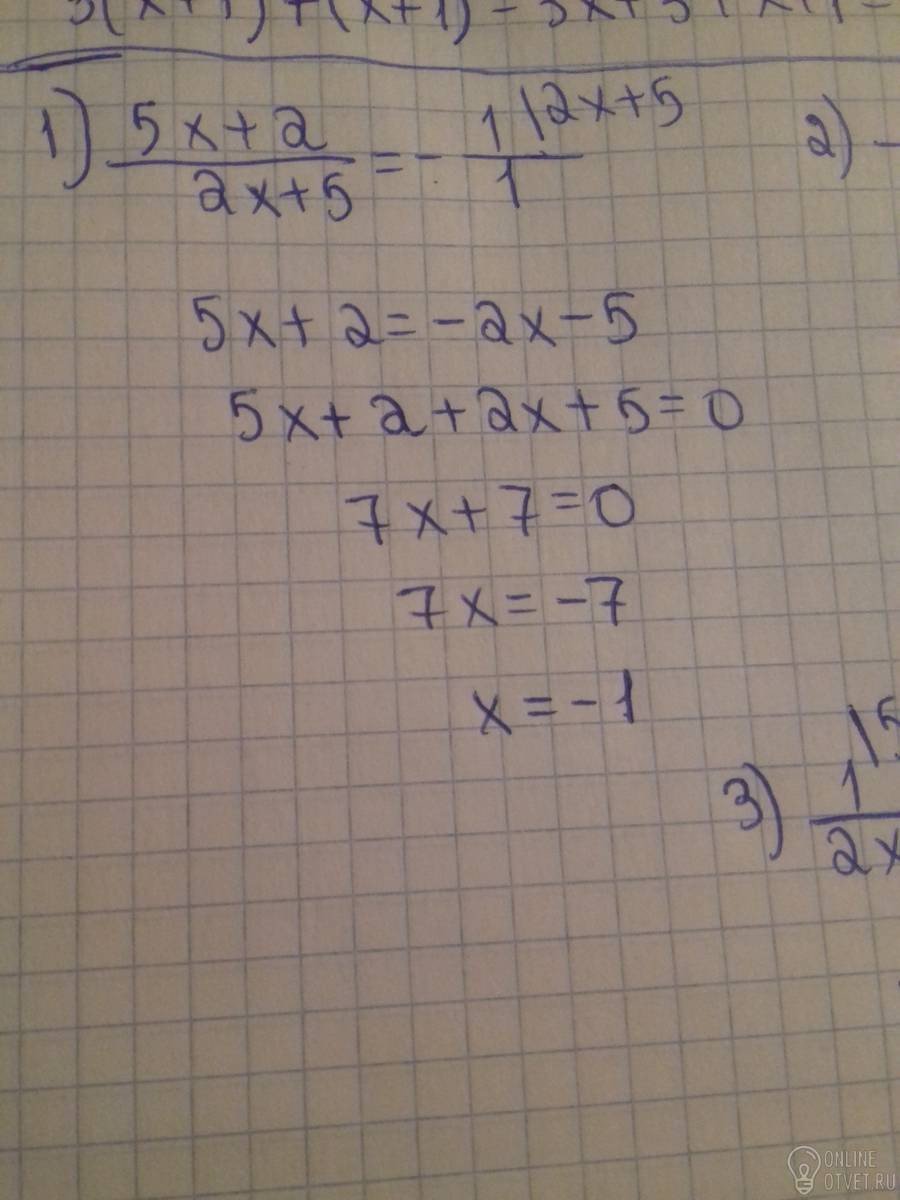 3(x+1)+(x+1)=3x+3+x+1=
1) 5x+2 / 2x+5 = - 1 / 1 |2x+5
2) -
5x+2=-2x-5
5x+2+2x+5=0
7x+7=0
7x=-7
x=-1
3) 1 / 2x |5
ONLINE
OTVET.RU